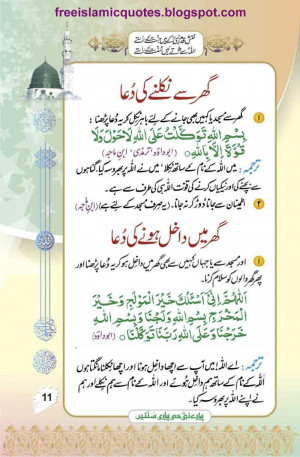 freeislamicquotes.blogspot.com
گھر سے نکلنے کی دُعا
۱ گھر سے مسجد یا کہیں بھی جانے کے لئے باہر نکل کر یہ دُعا پڑھنا :
بِسْمِ اللّٰهِ تَوَكَّلْتُ عَلَى اللّٰهِ لَا حَوْلَ وَلَا
قُوَّةَ اِلَّا بِاللّٰهِ (ابوداؤد، ترمذی، ابن ماجہ)
ترجمہ : میں اللہ کے نام کے ساتھ نکلا، میں نے اللہ پر بھروسہ کیا، گناہوں
سے بچنے کی اور نیکیاں کرنے کی قوت اللہ ہی کی طرف سے ہے۔
۲ اطمینان سے جانا، دوڑ کر نہ جانا۔ (یہ صرف مسجد کے لئے ہے) (ابن ماجہ)
گھر میں داخل ہونے کی دُعا
۱ اور مسجد سے یا جہاں کہیں سے بھی گھر میں داخل ہو کر یہ دُعا پڑھنا اور
پھر گھر والوں کو سلام کرنا۔
اَللّٰهُمَّ اِنِّیْ اَسْئَلُكَ خَيْرَ الْمَوْلَجِ وَ خَيْرَ
الْمَخْرَجِ بِسْمِ اللّٰهِ وَلَجْنَا وَ بِسْمِ اللّٰهِ
خَرَجْنَا وَ عَلَى اللّٰهِ رَبِّنَا تَوَكَّلْنَا (ابوداؤد)
ترجمہ : اے اللہ! میں آپ سے اچھا داخل ہونا اور اچھا نکلنا مانگتا ہوں
اللہ کے نام کے ساتھ ہم داخل ہوئے اور اللہ کے نام سے ہم نکلے اور ہم
نے اپنے اللہ پر بھروسہ کیا۔
11
پیارے نبی کی پیاری سنتیں